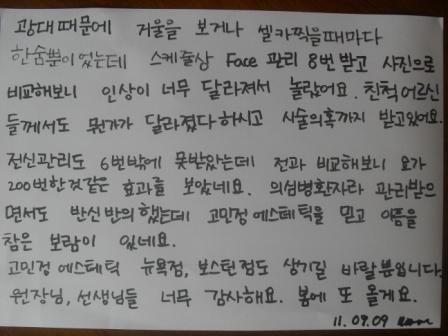 광대때문에 거울을 보거나 셀카찍을때마다
한숨뿐이었는데 스케줄상 Face 관리 8번 받고 사진으로
비교해보니 인상이 너무 달라져서 놀랐어요. 친척어르신
들께서도 뭔가가 달라졌다 하시고 시술의혹까지 받고있어요.
전신관리도 6번밖에 못받았는데 전과 비교해보니 요가
200번한것같은 효과를 보았네요. 의심병환자라 관리받으
면서도 반신반의했는데 고민정에스테틱을 믿고 아픔을
참은 보람이 있네요.
고민정에스테틱 뉴욕점, 보스턴점도 생기길 바랄뿐입니다.
원장님, 선생님들 너무 감사해요. 봄에 또 올게요.
11.09.09